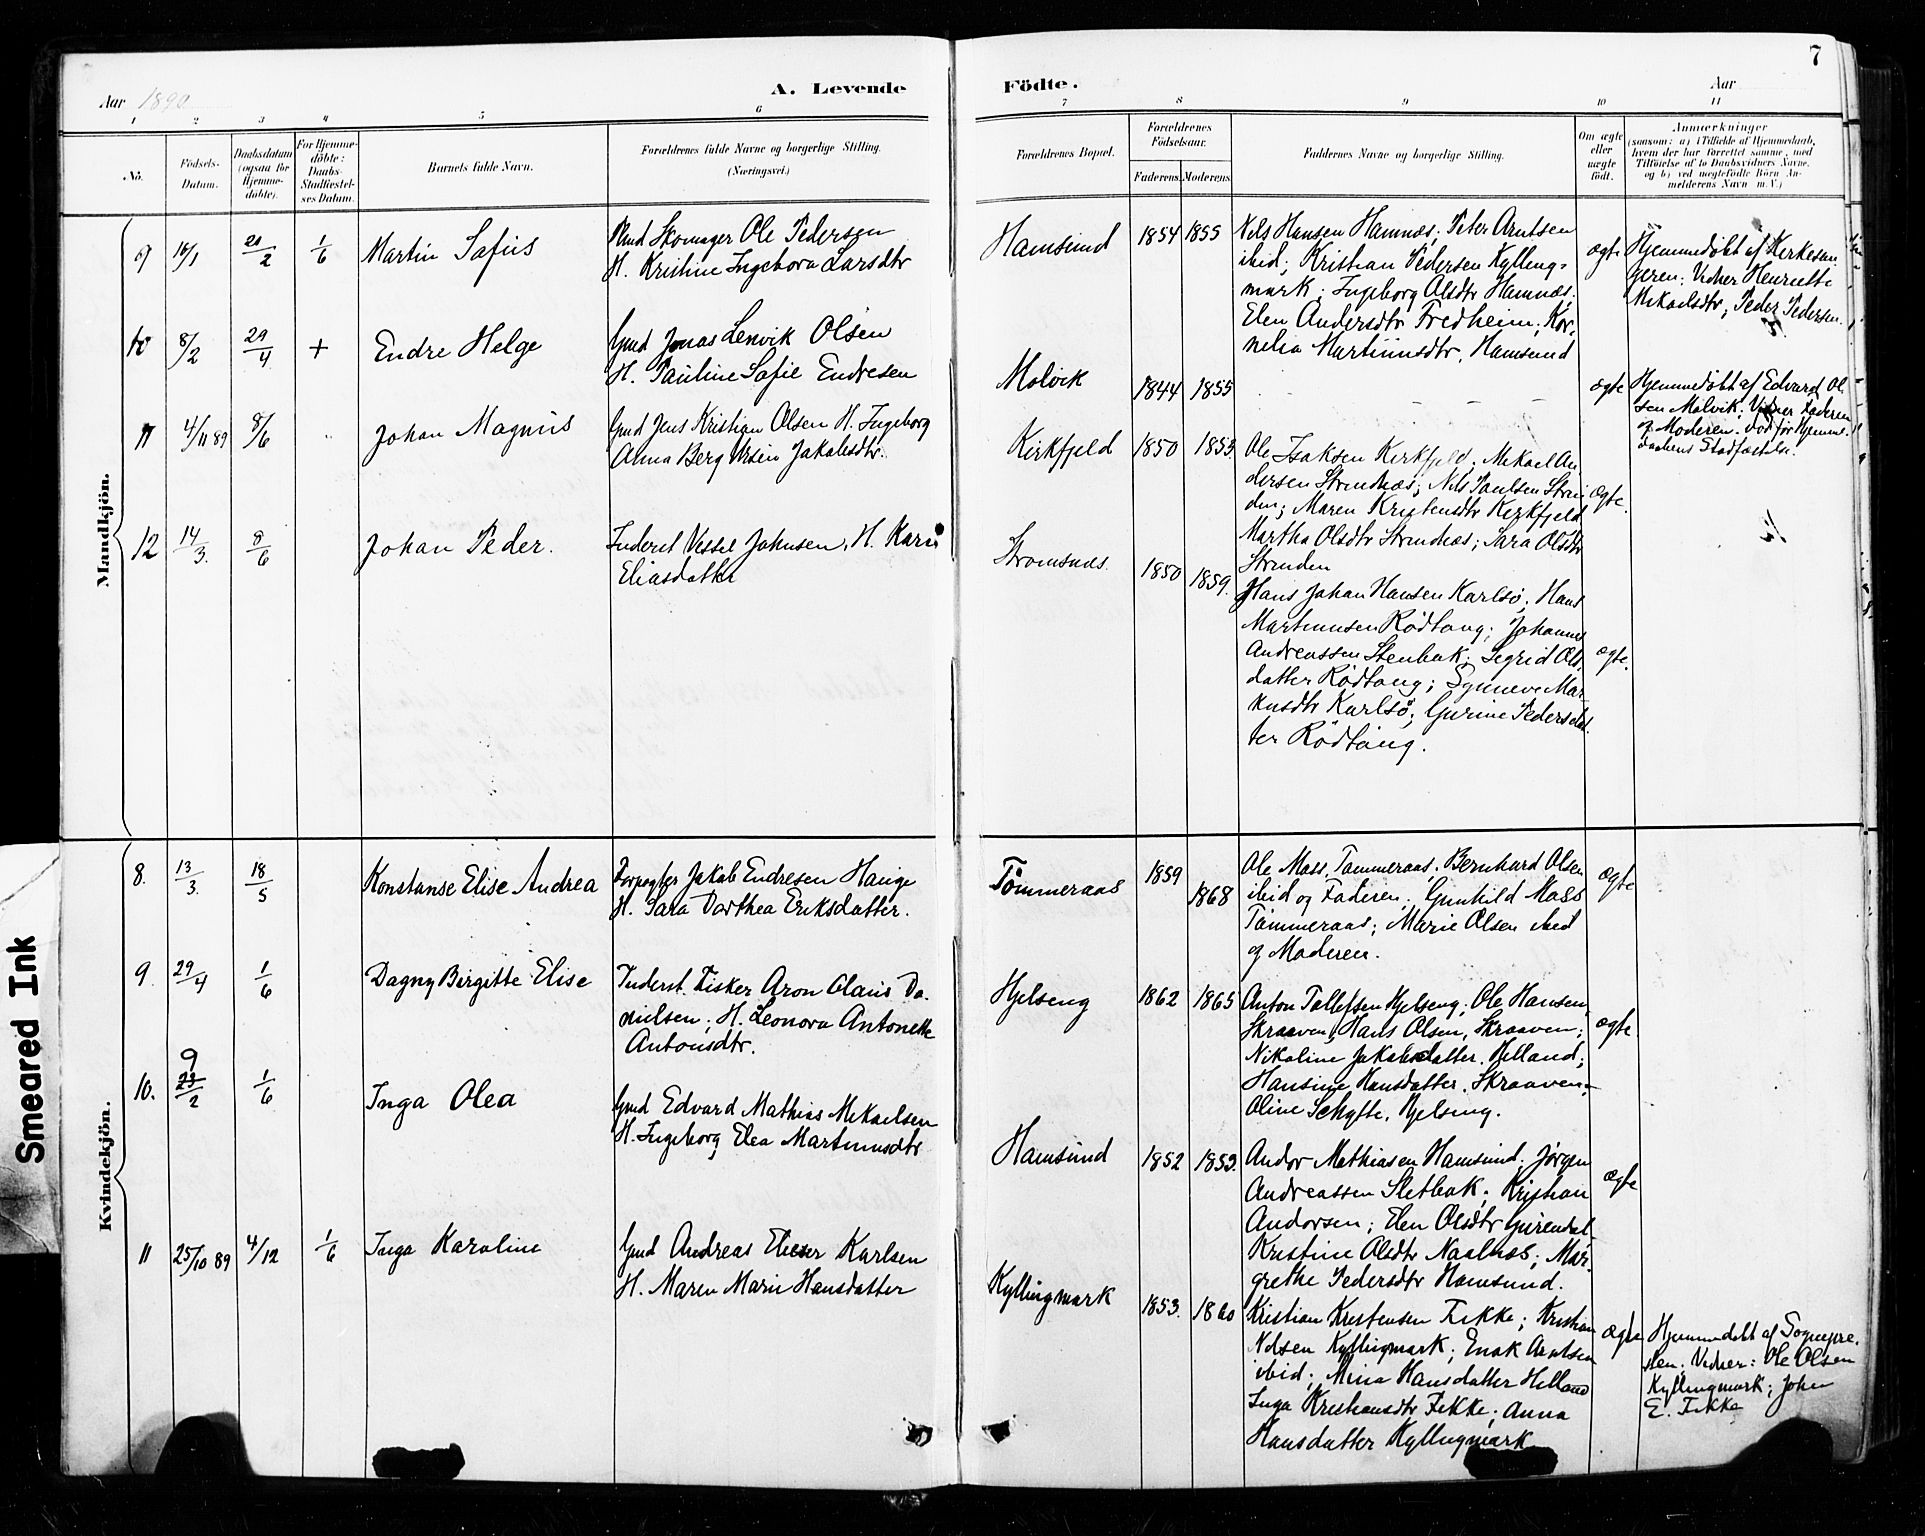 7
Aar 1890
A. Levende
Födte.
Aar
1 2 3 4 5 6
7 8 9 10 11
No.
Födsels-
Datum.
Daabsdatum
(ogsaa for
Hjemme-
döbte).
For Hjemme-
döbte:
Daabs-
Stadfæstel-
ses Datum.
Barnets fulde Navn.
Forældrenes fulde Navne og borgerlige Stilling.
(Næringsvei.)
Forældrenes Bopæl.
Forældrenes
Födselsaar.
Faderens. Moderens.
Faddernes Navne og borgerlig Stilling.
Om ægte
eller
uægte
födt.
Anmærkninger
(saasom: a) i Tilfælde af Hjemmedaab,
hvem der har forrettet samme, med
Tilföielse af to Daabsvidners Navne,
og b) ved uægtefödte Börn An-
melderens Navn m. V.)
Mandkjön.
9 16/1 20/2 1/6 Martin Safus
Skomager Ole Pedersen
H. Kristine Ingeborg Larsdtr
Hamsund 1854 1855
Nils Hansen Hamnæs; Peter Arntsen
ibid; Kristian Pedersen Kylling-
mark; Ingeborg Olsdtr Hamnæs;
Elen Andersdtr Fredheim; Kor-
nelia Martinusdtr, Hamsund
ægte
Hjemmedöbt af Kirkesan
geren. Vidner Henriette
Mikaelsdtr, Peder Pedersen.
10 8/2 29/4 + Endre Helge
Gmd Jonas Lenvik Olsen
H. Pauline Sofie Endresen
Molvik 1844 1855
ægte
Hjemmedöbt af Edvard Ol
sen Molvik. Vidner Faderen
og Moderen. Död för Hjemme-
daabens Stadfæstelse.
11 4/11 89 8/6 " Johan Magnus
Gmd Jens Kristian Olsen H. Ingeborg
Anna Berg Ursin Jakobsdtr.
Kirkfjeld 1850 1853
Ole Isaksen Kirkfjeld; Mikael An
dersen Strindnæs; Nils Paulsen Strin
den; Maren Kristensdtr Kirkfjeld
Martha Olsdtr Strindnæs; Sara Olsdtr
Strinden
ægte.
12 14/3. 8/6 Johan Peder.
Inderst Vessel Johnsen, H. Karen
Eliasdatter
Stromsnæs. 1850 1859.
Hans Johan Hansen Karlsö; Hans
Martinusen Rödtang; Johannes
Andreassen Stenbak; Sigrid Ols
datter Rödtang; Synneve Mar-
kusdtr Karlsö; Gurine Pedersdat-
ter Rödtang.
ægte.
Kvindekjön.
8. 13/3. 18/5 Konstanse Elise Andrea
Forpagter Jakob Endresen Hauge
H. Sara Dorthea Eriksdatter.
Tömmeraas 1859 1868
Ole Mass. Tömmeraas; Bernhard Olsen
ibid og Faderen; Gunhild Mass
Tömmeraas; Marie Olsen ibid
og Moderen.
ægte
9 29/4 1/6 Dagny Birgitte Elise
Inderst. Fisker Aron Claus Da-
nielsen; H. Leonora Antonette
Antonsdtr.
Hjelseng 1862 1865
Anton Tollefsen Hjelseng; Ole Hansen,
Skraaven; Hans Olsen, Skraaven;
Nikoline Jakobsdatter. Helland;
Hansine Hansdatter. Skraaven;
Oline Schytte, Hjelseng.
ægte
10. 9 23/2 1/6 Inga Olea
Gmd Edvard Mathias Mikaelsen
H. Ingeborg Elea Martinusdtr
Hamsund 1852 1853.
Andor Mathiasen Hamsund; Jörgen
Andreassen Sletbak; Kristian
Andorsen; Elen Olsdtr
Kristine Olsdtr Naalnæs; Mar-
grethe Pedersdtr Hamsund.
ægte
11 25/10 89 4/12 1/6 Inga Karoline
Gmd Andreas Elieser Karlsen
H. Maren Marie Hansdatter
Kyllingmark 1853. 1860
Kristian Kristensen Fikke; Kristian
Nilsen Kyllingmark; Enok Arntsen
ibid; Mina Hansdatter Helland
Inga Kristiansdtr Fikke; Anna
Hansdatter Kyllingmark
ægte
Hjemmedöbt af Sognepre-
sten. Vidner: Ole Olsen
Kyllingmark; Johan
E. Fikke
Smeared Ink